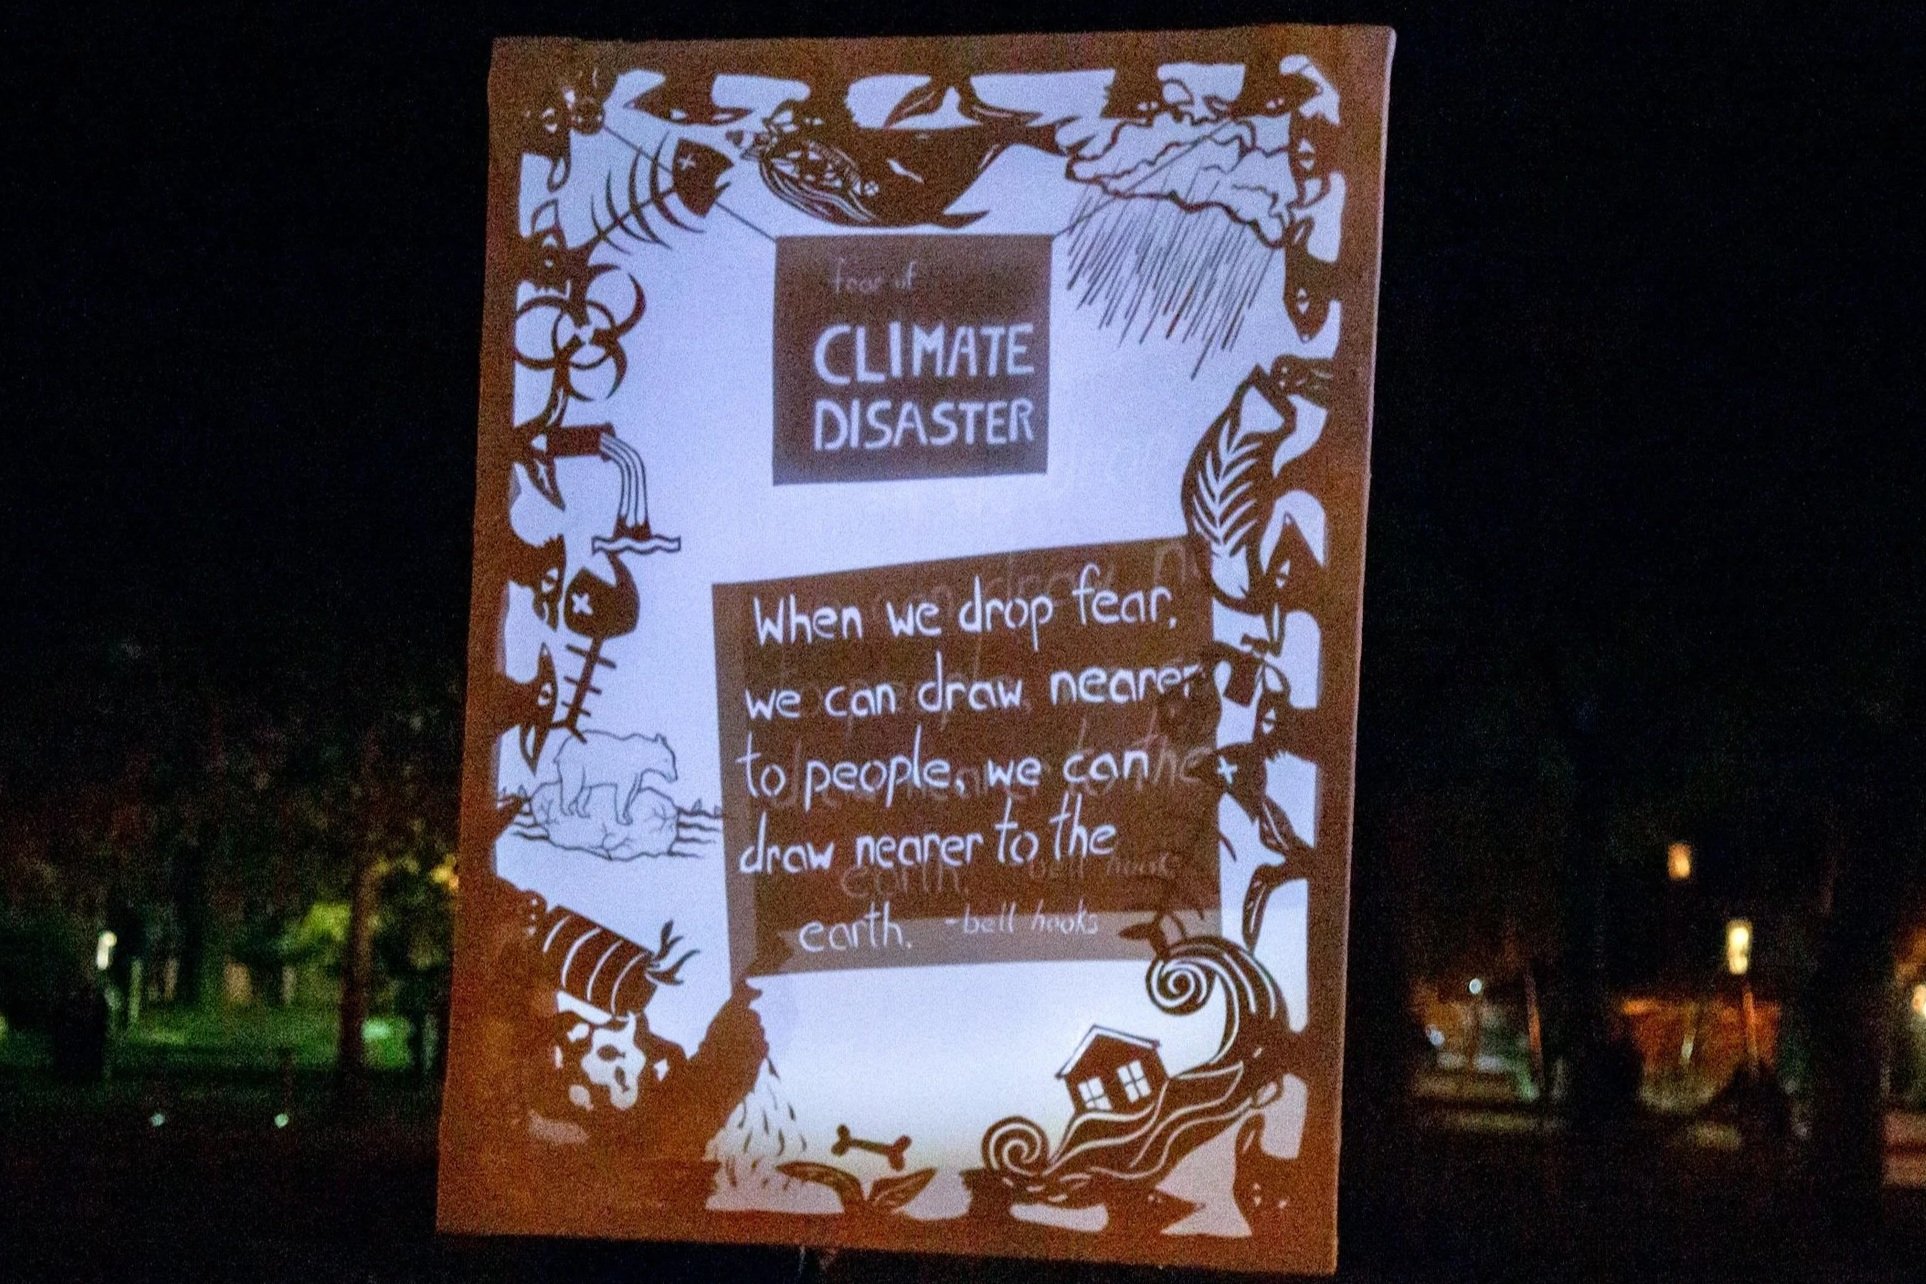 fear of
CLIMATE
DISASTER
When we drop fear,
we can draw nearer
to people, we can
draw nearer to the
earth. -bell hooks